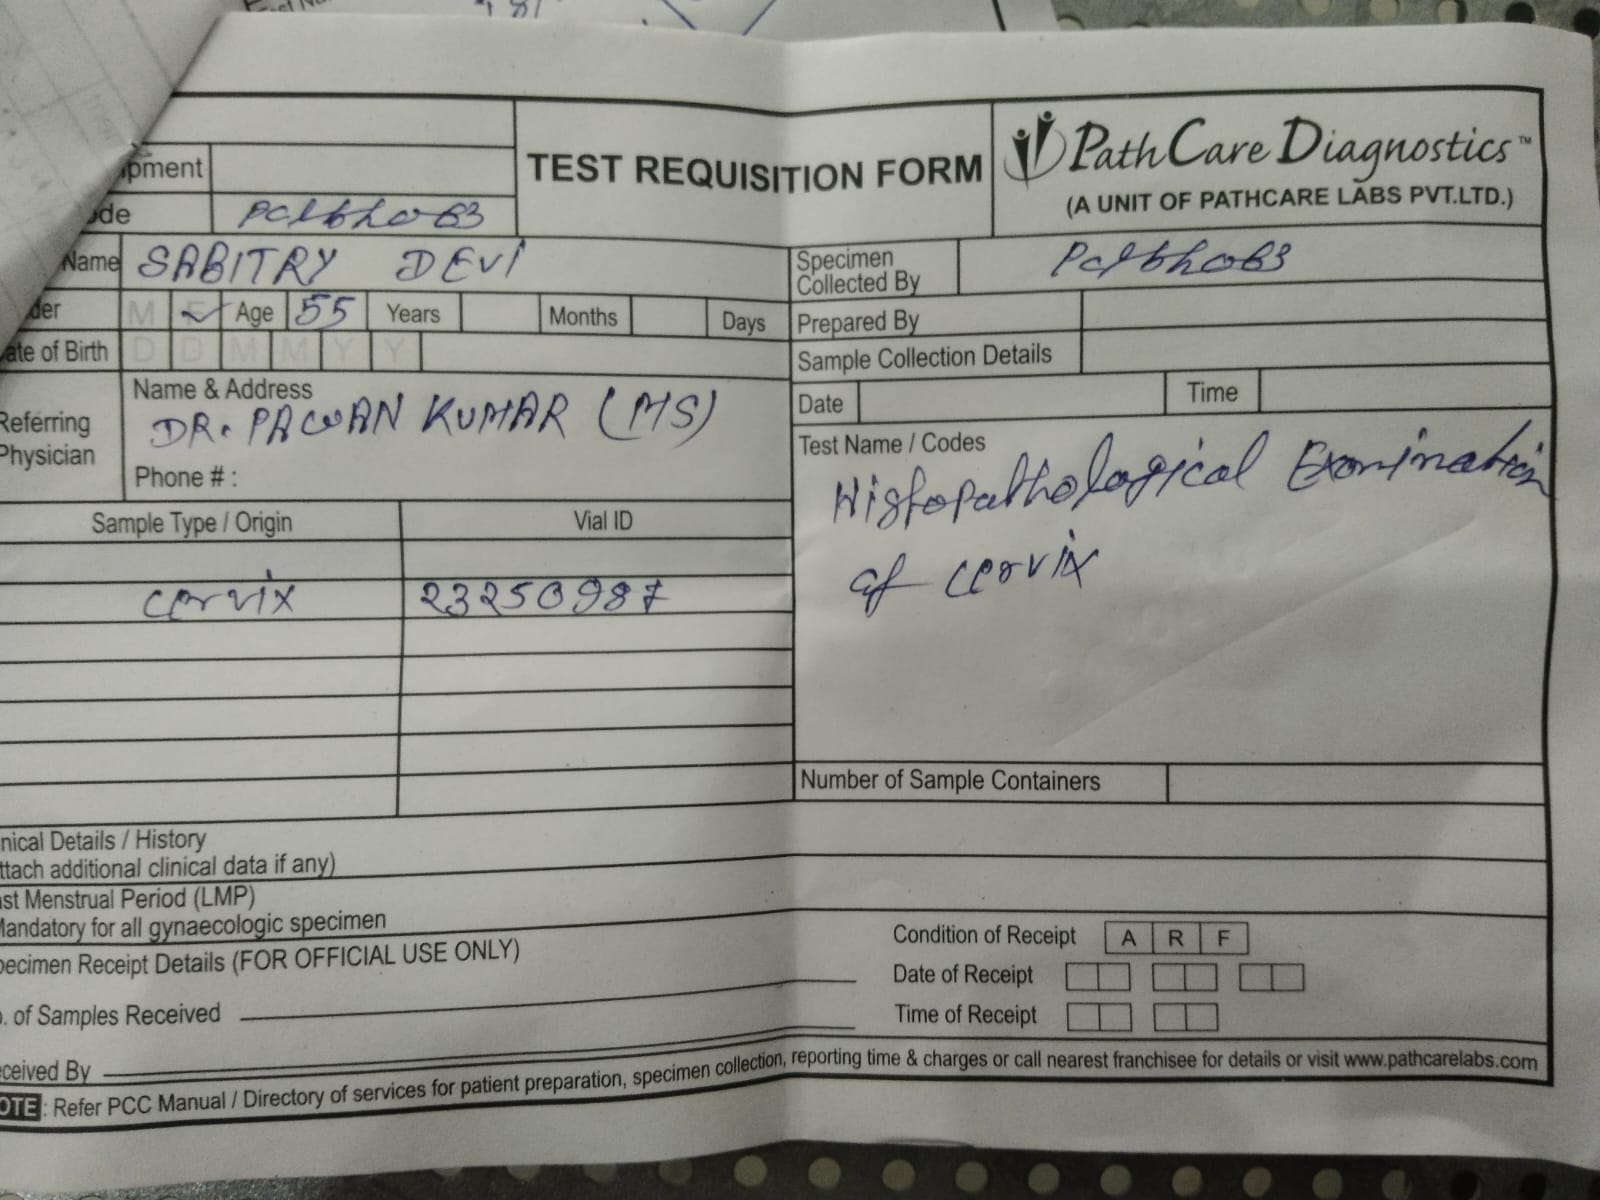 pment
TEST REQUISITION FORM
PathCare Diagnostics™
(A UNIT OF PATHCARE LABS PVT.LTD.)
de
Name SABITRY DEVI
Specimen Collected By
der M F Age 55 Years Months Days
Prepared By
ate of Birth D D M M Y Y
Sample Collection Details
Referring Physician
Name & Address
DR. PAWAN KUMAR (MS)
Phone # :
Date Time
Test Name / Codes
Histopathological Examination
of cervix
Sample Type / Origin Vial ID
cervix 23250987
Number of Sample Containers
nical Details / History
ttach additional clinical data if any)
st Menstrual Period (LMP)
Mandatory for all gynaecologic specimen
pecimen Receipt Details (FOR OFFICIAL USE ONLY)
Condition of Receipt A R F
Date of Receipt
. of Samples Received
Time of Receipt
ceived By
OTE : Refer PCC Manual / Directory of services for patient preparation, specimen collection, reporting time & charges or call nearest franchisee for details or visit www.pathcarelabs.com